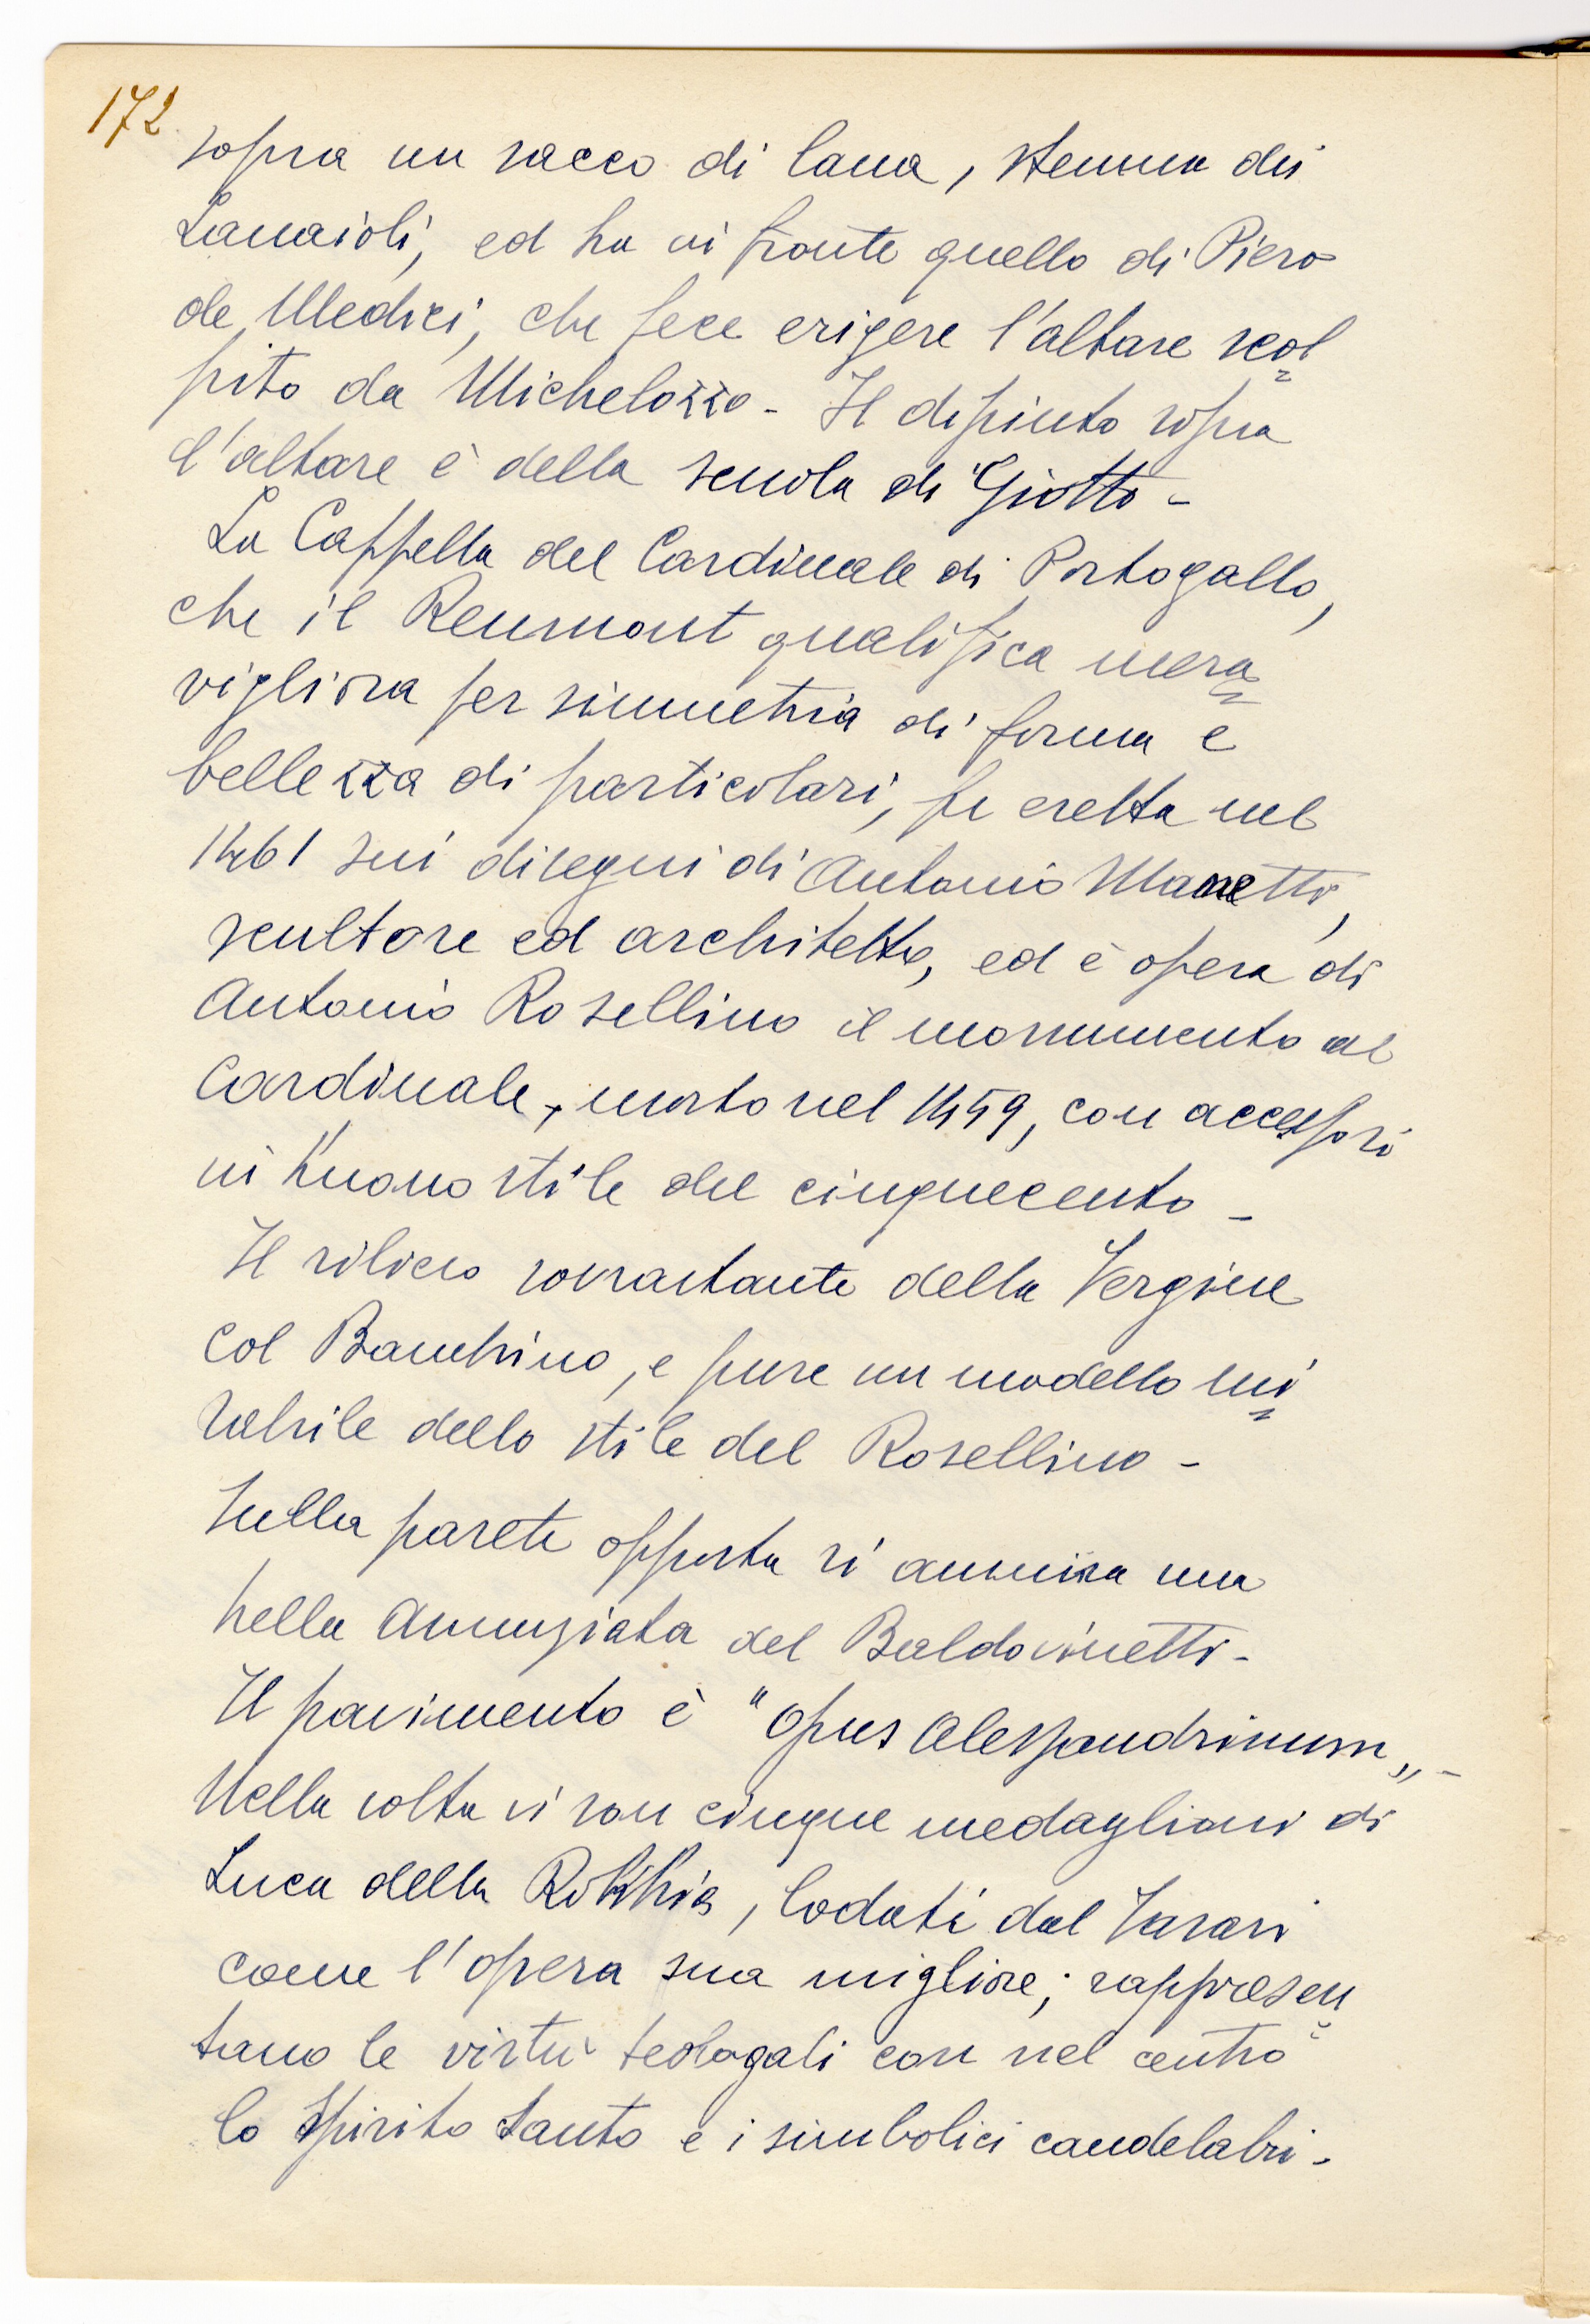 172
sopra un sacco di lana, stemma dei
Lanaioli, ed ha in fronte quello di Piero
de Medici, che fece erigere l'altare scol=
pito da Michelozzo - Il dipinto sopra
l'altare è della scuola di Giotto -
La Cappella del Cardinale di Portogallo,
che il Reumont qualifica mera=
vigliosa per simmetria di forma e
bellezza di particolari, fu eretta nel
1461 sui disegni di Antonio Manetti,
scultore ed architetto, ed è opera di
Antonio Rosellino il monumento al
Cardinale, morto nel 1459, con accessori
in buono stile del cinquecento -
Il rilievo sovrastante della Vergine
col Bambino, e pure un modello mi=
rabile dello stile del Rosellino -
Sulla parete opposta si ammira una
bella Annunziata del Baldovinetti -
Il pavimento è "Opus Alessandrinum„ -
Nella volta vi son cinque medaglioni di
Luca della Robbia, lodati dal Vasari
come l'opera sua migliore; rappresen=
tano le virtù teologali con nel centro
lo Spirito Santo e i simbolici candelabri -